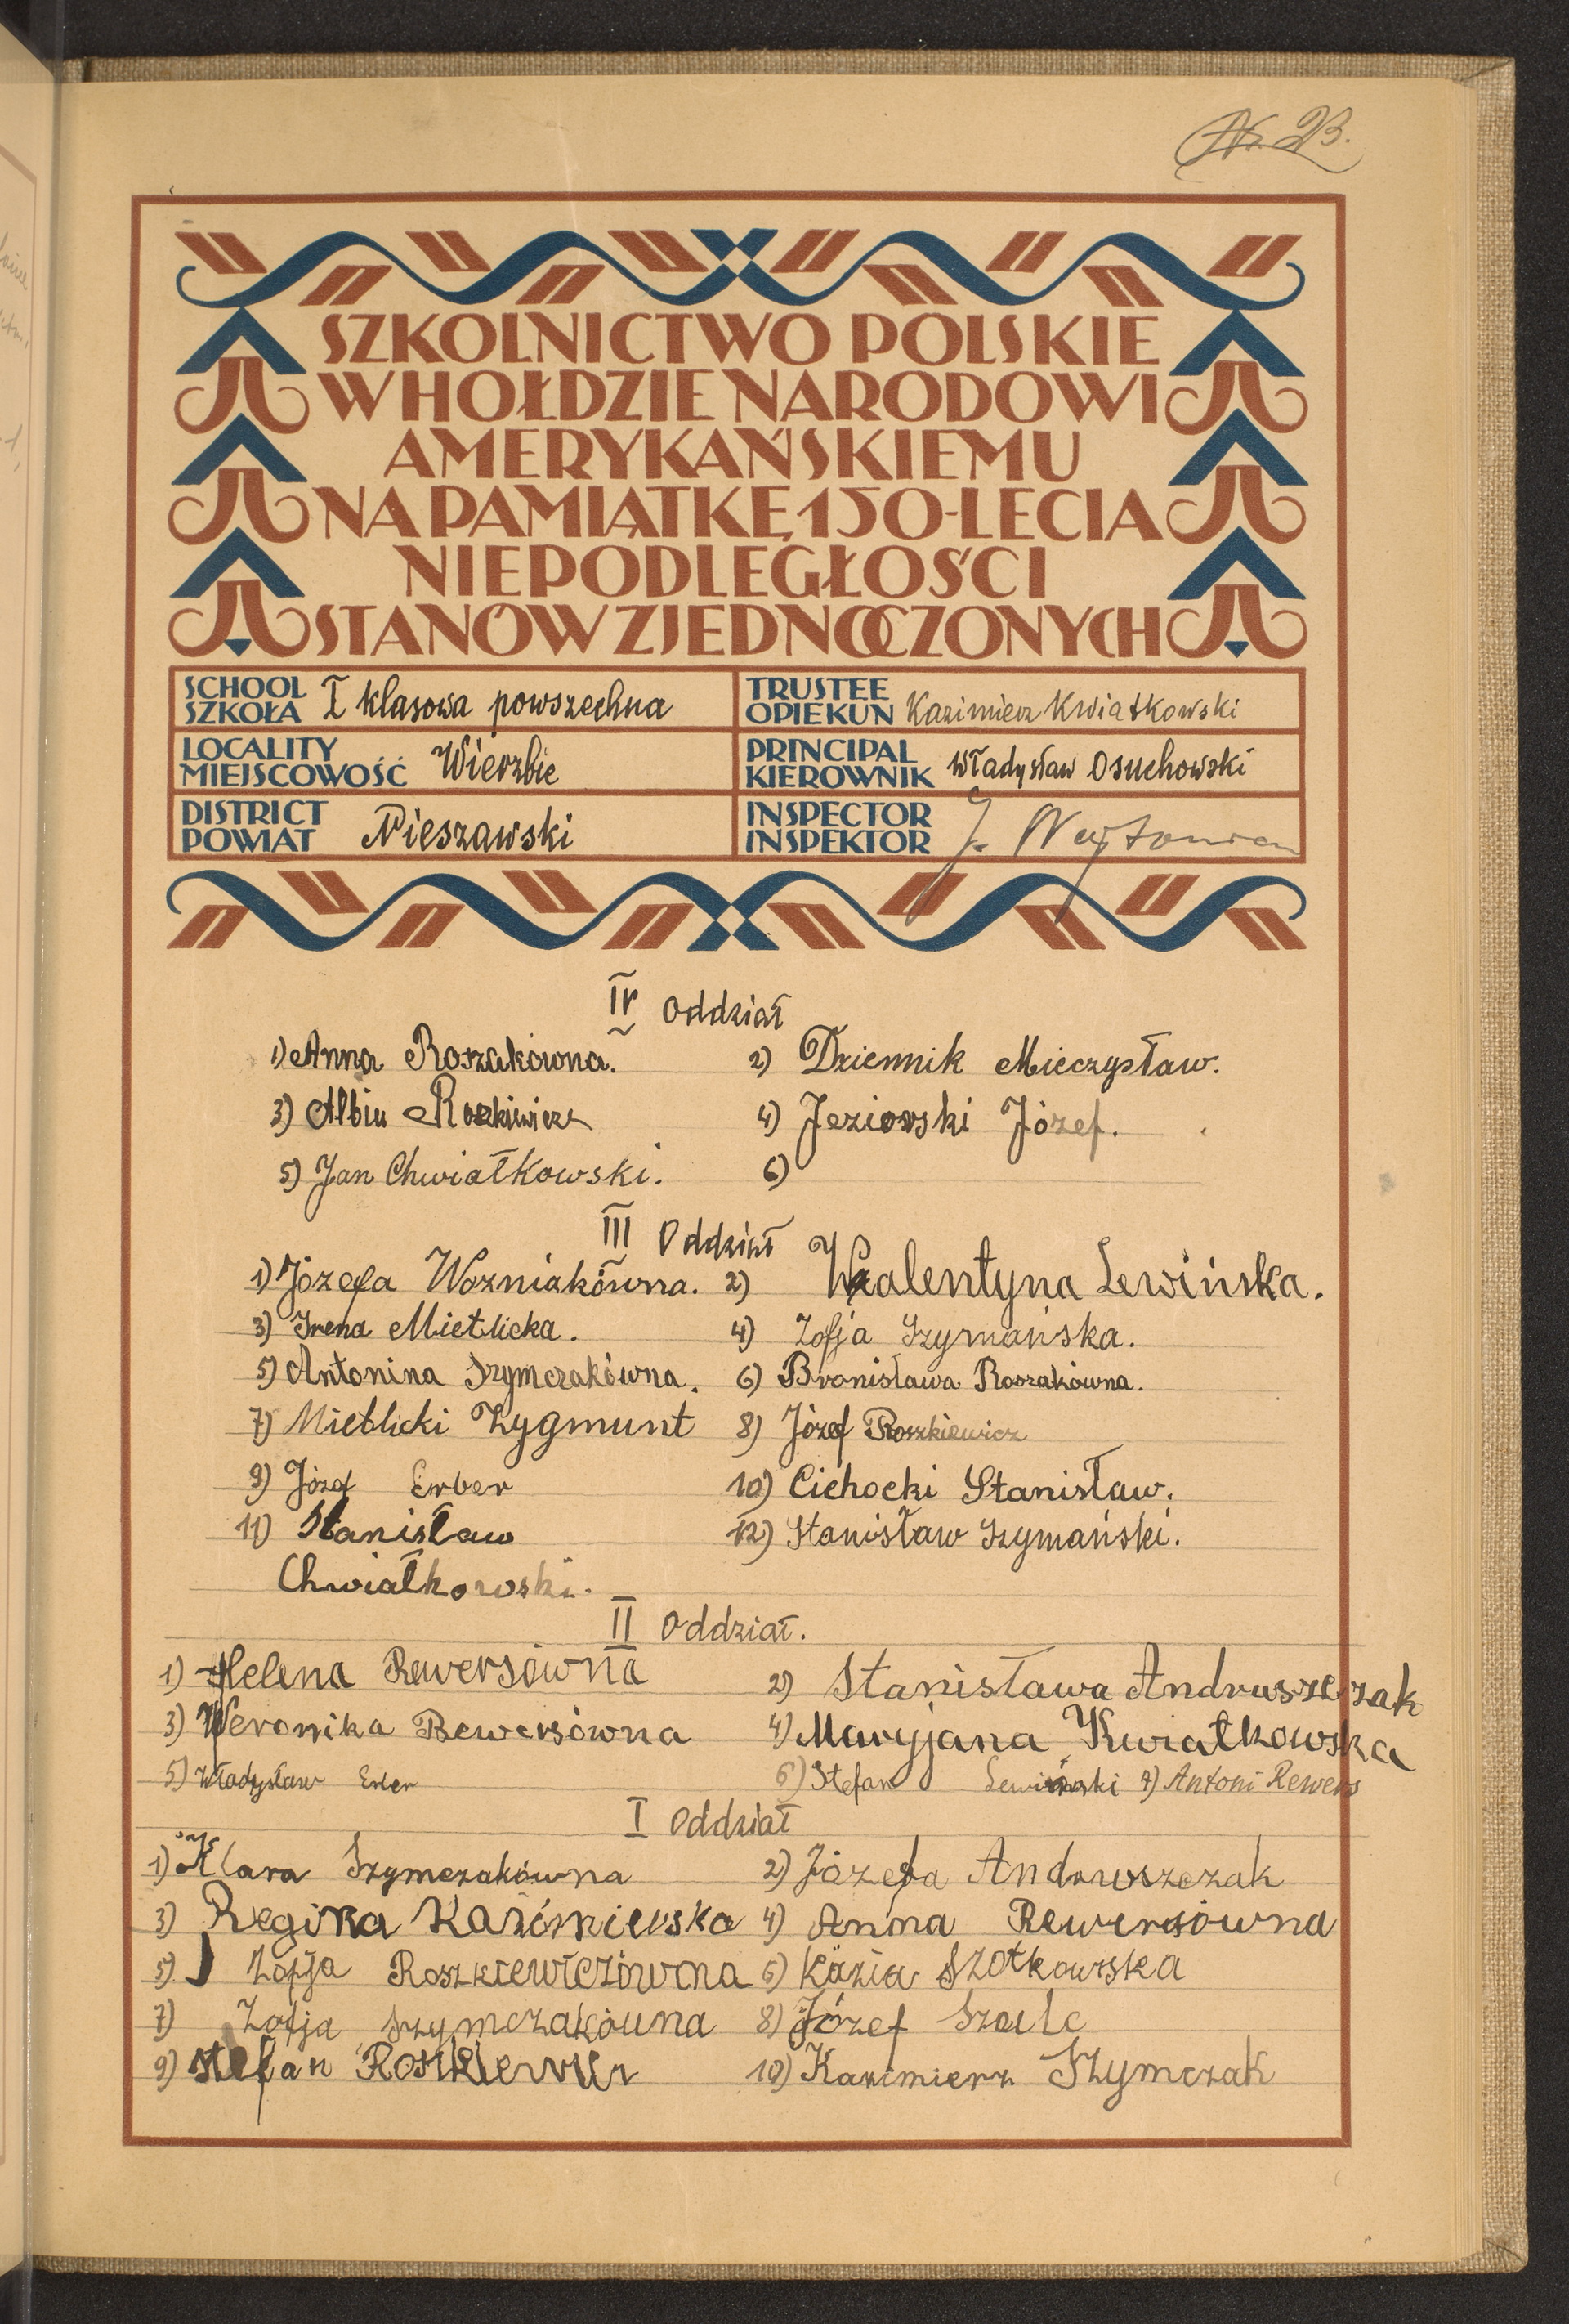 Nr. 23.
SZKOLNICTWO POLSKIE
W HOŁDZIE NARODOWI
AMERYKAŃSKIEMU
NA PAMIĄTKĘ 150-LECIA
NIEPODLEGŁOŚCI
STANÓW ZJEDNOCZONYCH
SCHOOL SZKOŁA I klasowa powszechna
TRUSTEE OPIEKUN Kazimierz Kwiatkowski
LOCALITY MIEJSCOWOŚĆ Wierzbie
PRINCIPAL KIEROWNIK Władysław Osuchowski
DISTRICT POWIAT Nieszawski
INSPECTOR INSPEKTOR J.
IV Oddział
1) Anna Roszakówna. 2) Dziennik Mieczysław.
3) Albin Roszkiewicz 4) Jeziorski Józef.
5) Jan Chwiałkowski. 6)
III Oddział
1) Józefa Wozniakówna. 2) Walentyna Lewińska.
3) Irena Mietlicka. 4) Zofja Szymańska.
5) Antonina Szymczakówna. 6) Bronisława Roszakówna.
7) Mietlicki Zygmunt 8) Józef Roszkiewicz
9) Józef Erber 10) Cichocki Stanisław.
11) Stanisław 12) Stanisław Szymański.
Chwiałkowski.
II Oddział.
1) Helena Rewersówna 2) Stanisława Andruszczak
3) Weronika Rewersówna 4) Maryjana Kwiatkowska
5) Władysław Erber 6) Stefan Lewiński 7) Antoni Rewers
I Oddział
1) Klara Szymczakówna 2) Józefa Andruszczak
3) Regina Kaźmierska 4) Anna Rewersówna
5) Zofja Roszkiewiczówna 6) Kazia Szotkowska
7) Zofja Szymczakówna 8) Józef Szulc
9) Stefan Roszkiewicz 10) Kazimierz Szymczak